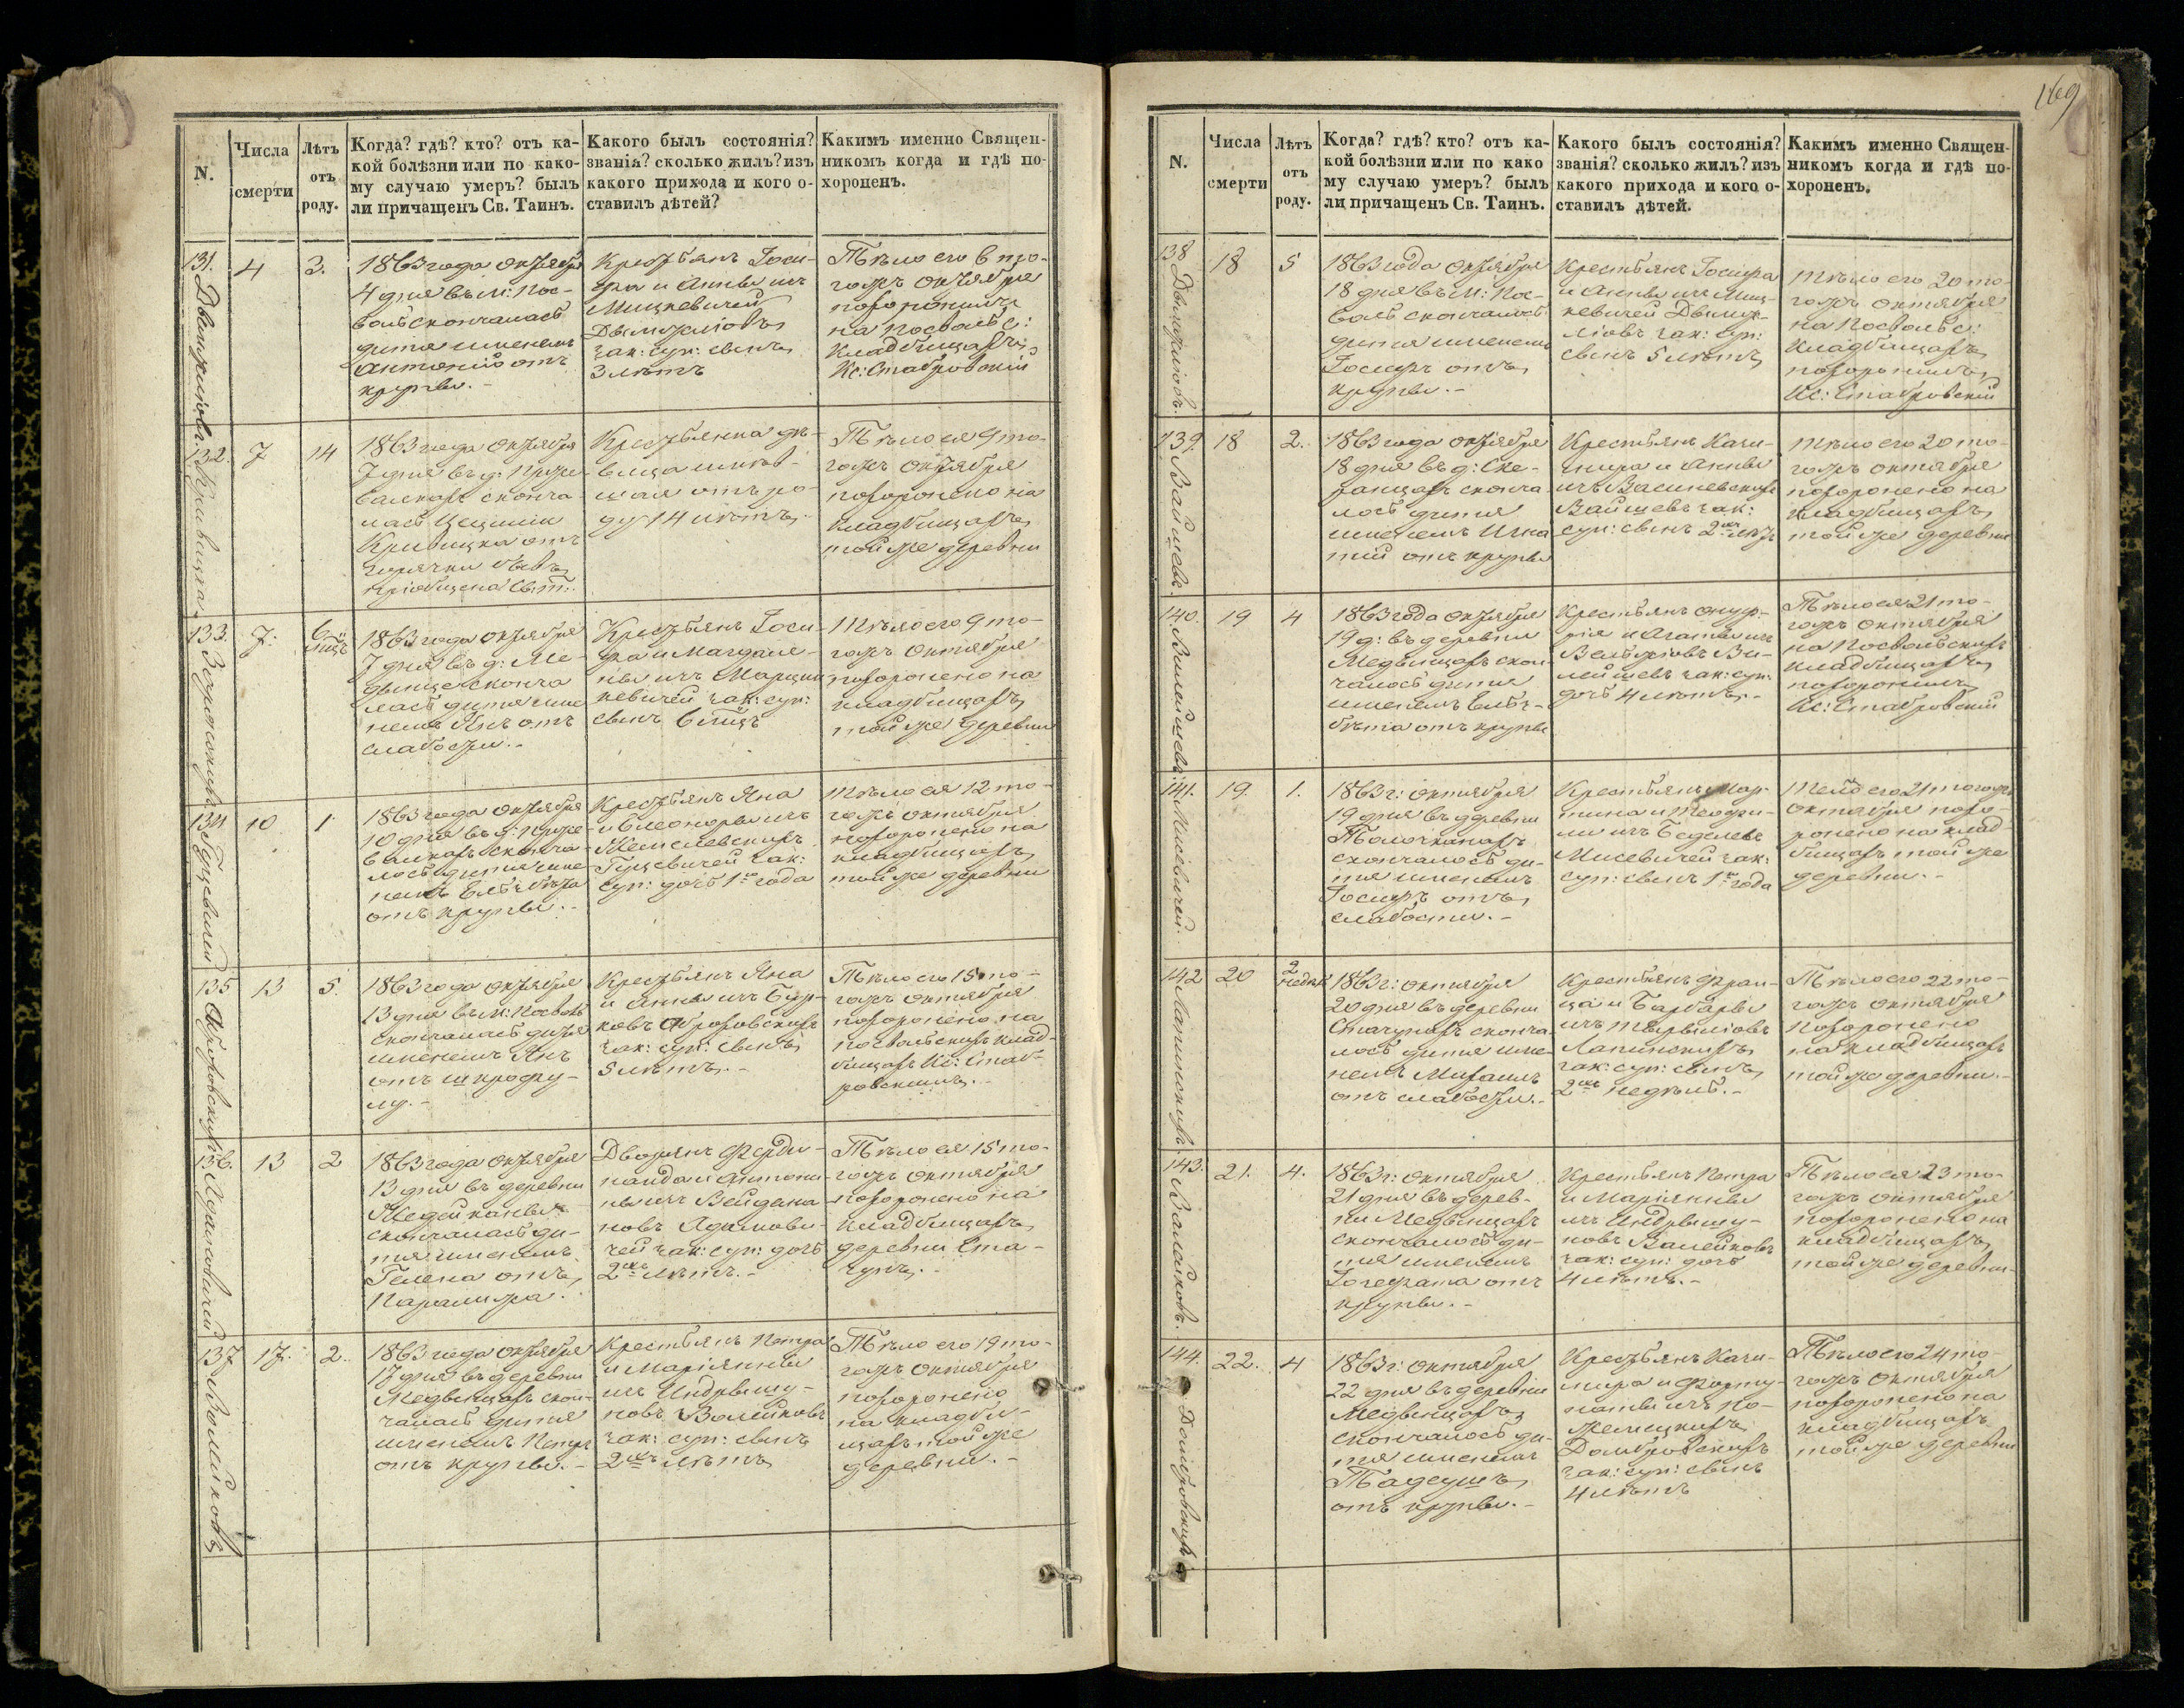 169
N.
Числа
смерти
Лѣтъ
отъ
роду.
Когда? гдѣ? кто? отъ ка-
кой болѣзни или по како-
му случаю умеръ? былъ
ли причащенъ Св. Таинъ.
Какого былъ состоянія?
званія? сколько жилъ? изъ
какого прихода и кого о-
ставилъ дѣтей?
Какимъ именно Священ-
никомъ когда и гдѣ по-
хороненъ.
131.
4
3.
1863 года октября
4 дня въ м: Пос-
воль скончалась
дитя именемъ
Антоній отъ
крупы.-
Крестьянъ Іоси-
фа и Анны изъ
Мицкевичей
зак: суп: сынъ
3 лѣтъ
Тѣло его 6 то-
гожъ октября
похоронилъ
на Посвольс:
кладбищахъ
Кс: Стабровскій
132.
7
14
1863 года октября
7 дня въ д:
скончa-
лась
Кривицка отъ
горячки бывъ
пріобщена Св: т:
Крестьянка дѣ-
вица
отъ ро-
ду 14 лѣтъ.
Тѣло ея 9 то-
гожъ октября
похоронено на
кладбищахъ
той же деревни
133.
7.
6
1863 года октября
7 дня въ д: Ме-
сконча
лась дитя име
немъ Янъ отъ
слабости.-
Крестьянъ Іоси-
фа и Магдале-
ны изъ Марцин
кевичей зак: суп:
сынъ 6
Тѣло его 9 то-
гожъ октября
похоронено на
кладбищахъ
той же деревни
134.
10
1
1863 года октября
10 дня въ д:
сконча-
лось дитя име
немъ Ельжбѣта
отъ крупы.-
Крестьянъ Яна
и Элеоноры изъ
Гуцевичей зак:
суп: дочь 1 года
Тѣло ея 12 то-
гожъ октября
похоронено на
кладбищахъ
той же деревни
135
13
5.
1863 года октября
13 дня въ м: Посволь
скончалась дитя
именемъ Янъ
отъ шкрофу-
лу.-
Крестьянъ Яна
и Анны изъ Бур-
ковъ
зак: суп: сынъ
5 лѣтъ.-
Тѣло его 15 то-
гожъ октября
похоронено на
посвольскихъ клад-
бищахъ Кс: Стаб-
ровскимъ.-
136.
13
2
1863 года октября
13 дня въ деревни
скончалась ди-
тя именемъ
Гелена отъ
паралижа.
Дворянъ Ферди-
нанда и Антони-
ны изъ
Адамови-
чей зак: суп: дочь
2 лѣтъ.-
Тѣло ея 15 то-
гожъ октября
похоронено на
кладбищахъ
деревни Ста-
чунъ.-
137.
17.
2.
1863 года октября
17 дня въ деревни
скон-
чалась дитя
именемъ Петръ
отъ крупы.-
Крестьянъ Петра
и Маріянны
изъ Индрышу-
новъ Валейковъ
зак: суп: сынъ
2 лѣтъ
Тѣло его 19 то-
гожъ октября
похоронено
на кладби-
щахъ той же
деревни.-
N.
Числа
смерти
Лѣтъ
отъ
роду.
Когда? гдѣ? кто? отъ ка-
кой болѣзни или по како
му случаю умеръ? былъ
ли причащенъ Св. Таинъ.
Какого былъ состоянія?
званія? сколько жилъ? изъ
какого прихода и кого о-
ставилъ дѣтей.
Какимъ именно Священ-
никомъ когда и гдѣ по-
хороненъ.
138
18
5
1863 года октября
18 дня въ м: Пос-
воль скончалось
дитя именемъ
Іосифъ отъ
крупы.-
Крестьянъ Іосифа
и Анны изъ Миц-
кевичей
зак: суп:
сынъ 5 лѣтъ
Тѣло его 20 то-
гожъ октября
на Посвольс:
кладбищахъ
похоронилъ
Кс: Стабровскій
139.
18
2.
1863 года октября
18 дня въ д:
сконча
лось дитя
именемъ Игна
тій отъ крупы
Крестьянъ Кази-
мира и Анны
изъ Василевскихъ
зак:
суп: сынъ 2 лѣтъ
Тѣло его 20 то-
гожъ октября
похоронено на
кладбищахъ
той же деревни
140.
19
4
1863 года октября
19 д: въ деревни
скон-
чалось дитя
именемъ Ельж-
бѣта отъ крупы
Крестьянъ Онуф-
рія и Агаты изъ
зак: суп:
дочь 4 лѣтъ.-
Тѣло ея 21 то-
гожъ октября
на Посвольскихъ
кладбищахъ
похоронилъ
Кс: Стабровскій
141.
19.
1.
1863 г: октября
19 дня въ деревни
скончалось ди-
тя именемъ
Іосифъ отъ
слабости.-
Крестьянъ Мар-
тина и Теофи-
ли изъ
Мисевичей зак:
суп: сынъ 1 года
его 21 тогожъ
октября похо-
ронено на клад-
бищахъ той же
деревни.-
142
20
2
недѣл
1863 г: октября
20 дня въ деревни
Стачунахъ сконча
лось дитя име-
немъ Михаилъ
отъ слабости.-
Крестьянъ Фран-
ца и Барбары
изъ
Лапинскихъ
зак: суп: сынъ
2 недѣль.-
Тѣло его 22 то-
гожъ октября
похоронено
на кладбищахъ
той же деревни.-
143.
21.
4.
1863 г: октября
21 дня въ дерев-
ни
скончалось ди-
тя именемъ
Іозефата отъ
крупы.-
Крестьянъ Петра
и Маріянны
изъ Индрышу-
новъ Валейковъ
зак: суп: дочь
4 лѣтъ.-
Тѣло ея 23 то-
гожъ октября
похоронено на
кладбищахъ
той же деревни-
144.
22.
4
1863 г: октября
22 дня въ деревни
скончалось ди-
тя именемъ
Тадеушъ
отъ крупы.-
Крестьянъ Кази-
мира и Форту-
наты изъ По-
Домбровскихъ
зак: суп: сынъ
4 лѣтъ
Тѣло его 24 то-
гожъ октября
похоронено на
кладбищахъ
той же деревни